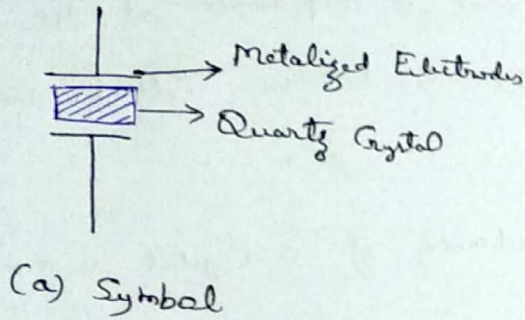 Metalized Electrodes
Quartz Crystal
(a) Symbol